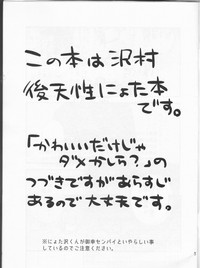 この本は沢村
後天性にょた本
です。
「かわいいだけじゃ
ダメかしら?」の
つづきですがあらすじ
あるので大丈夫です。
※にょた沢くんが御幸センパイといやらしい事
しているのでご注意ください。